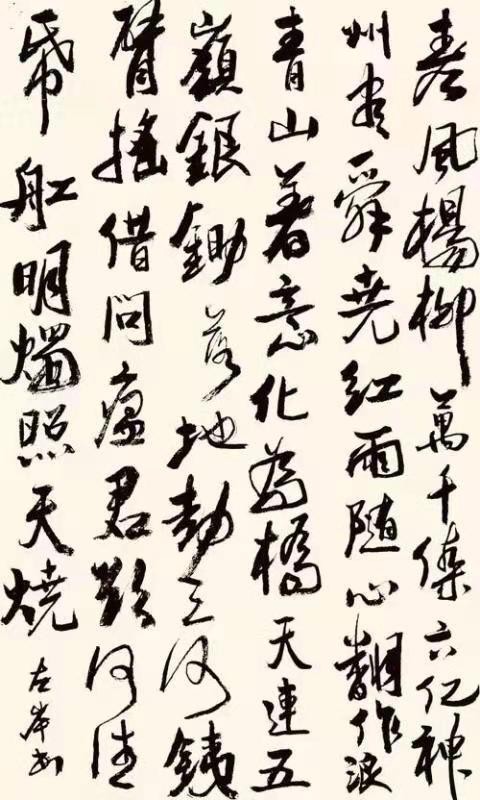 春風楊柳萬千條六亿神
州尽舜尭紅雨随心翻作浪
青山着意化為橋天連五
嶺銀鋤落地動三河銕
臂搖借問瘟君欲何往
帋舡明燭照天燒
左岸書